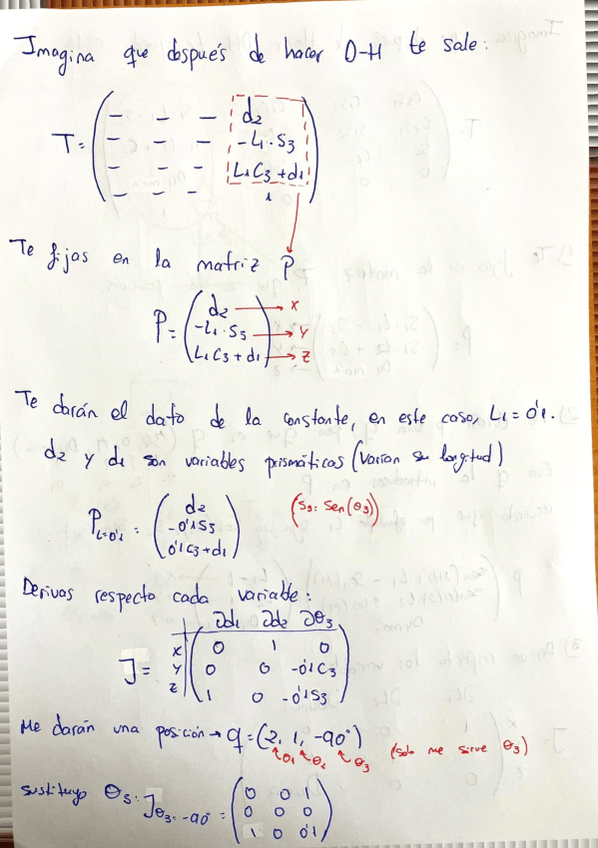 Imagina que después de hacer D-H te sale:
T= ( – – – d2
– – – -L1·S3
– – – L1C3+d1
– – – 1 )
Te fijas en la matriz P
P= ( d2 → X
-L1·S3 → Y
L1C3+d1 → Z )
Te darán el dato de la constante, en este caso, L1=0'1.
d2 y d1 son variables prismáticas (Varían su longitud)
P L=0'1 = ( d2
-0'1S3
0'1C3+d1 ) (S3: sen(θ3))
Derivas respecto cada variable:
∂d1 ∂d2 ∂θ3
J= X ( 0 1 0
Y 0 0 -0'1C3
Z 1 0 -0'1S3 )
Me darán una posición → q=(2, 1, -90°) (solo me sirve θ3)
θ1 θ2 θ3
sustituyo θ3: J θ3=-90° = ( 0 0 1
0 0 0
1 0 0'1 )